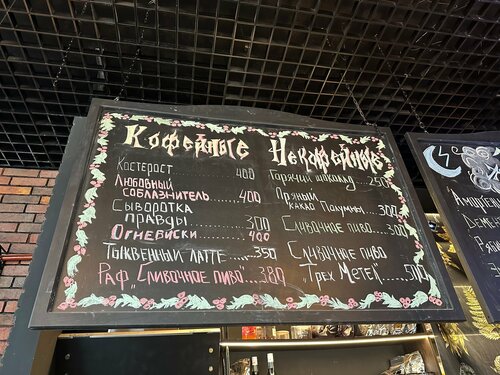 Кофейные
Костерост 400
Любовный
соблазнитель...400
Сыворотка
правды......300
Огневиски.....400
Тыквенный латте....350
Раф „Сливочное пиво"..380
Некофейные
Горячий шоколад...250
Пряный
какао Полумны..300
Сливочное пиво...300
Сливочное пиво
„Трех Метел"